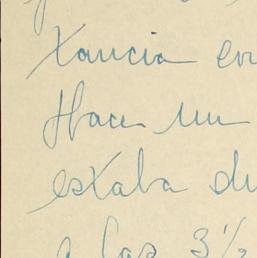 xancia en
Hace un
estaba de
a las 3½